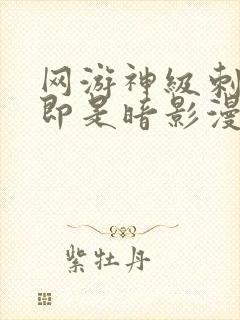 网游神级刺
即是暗影漫
紫牡丹